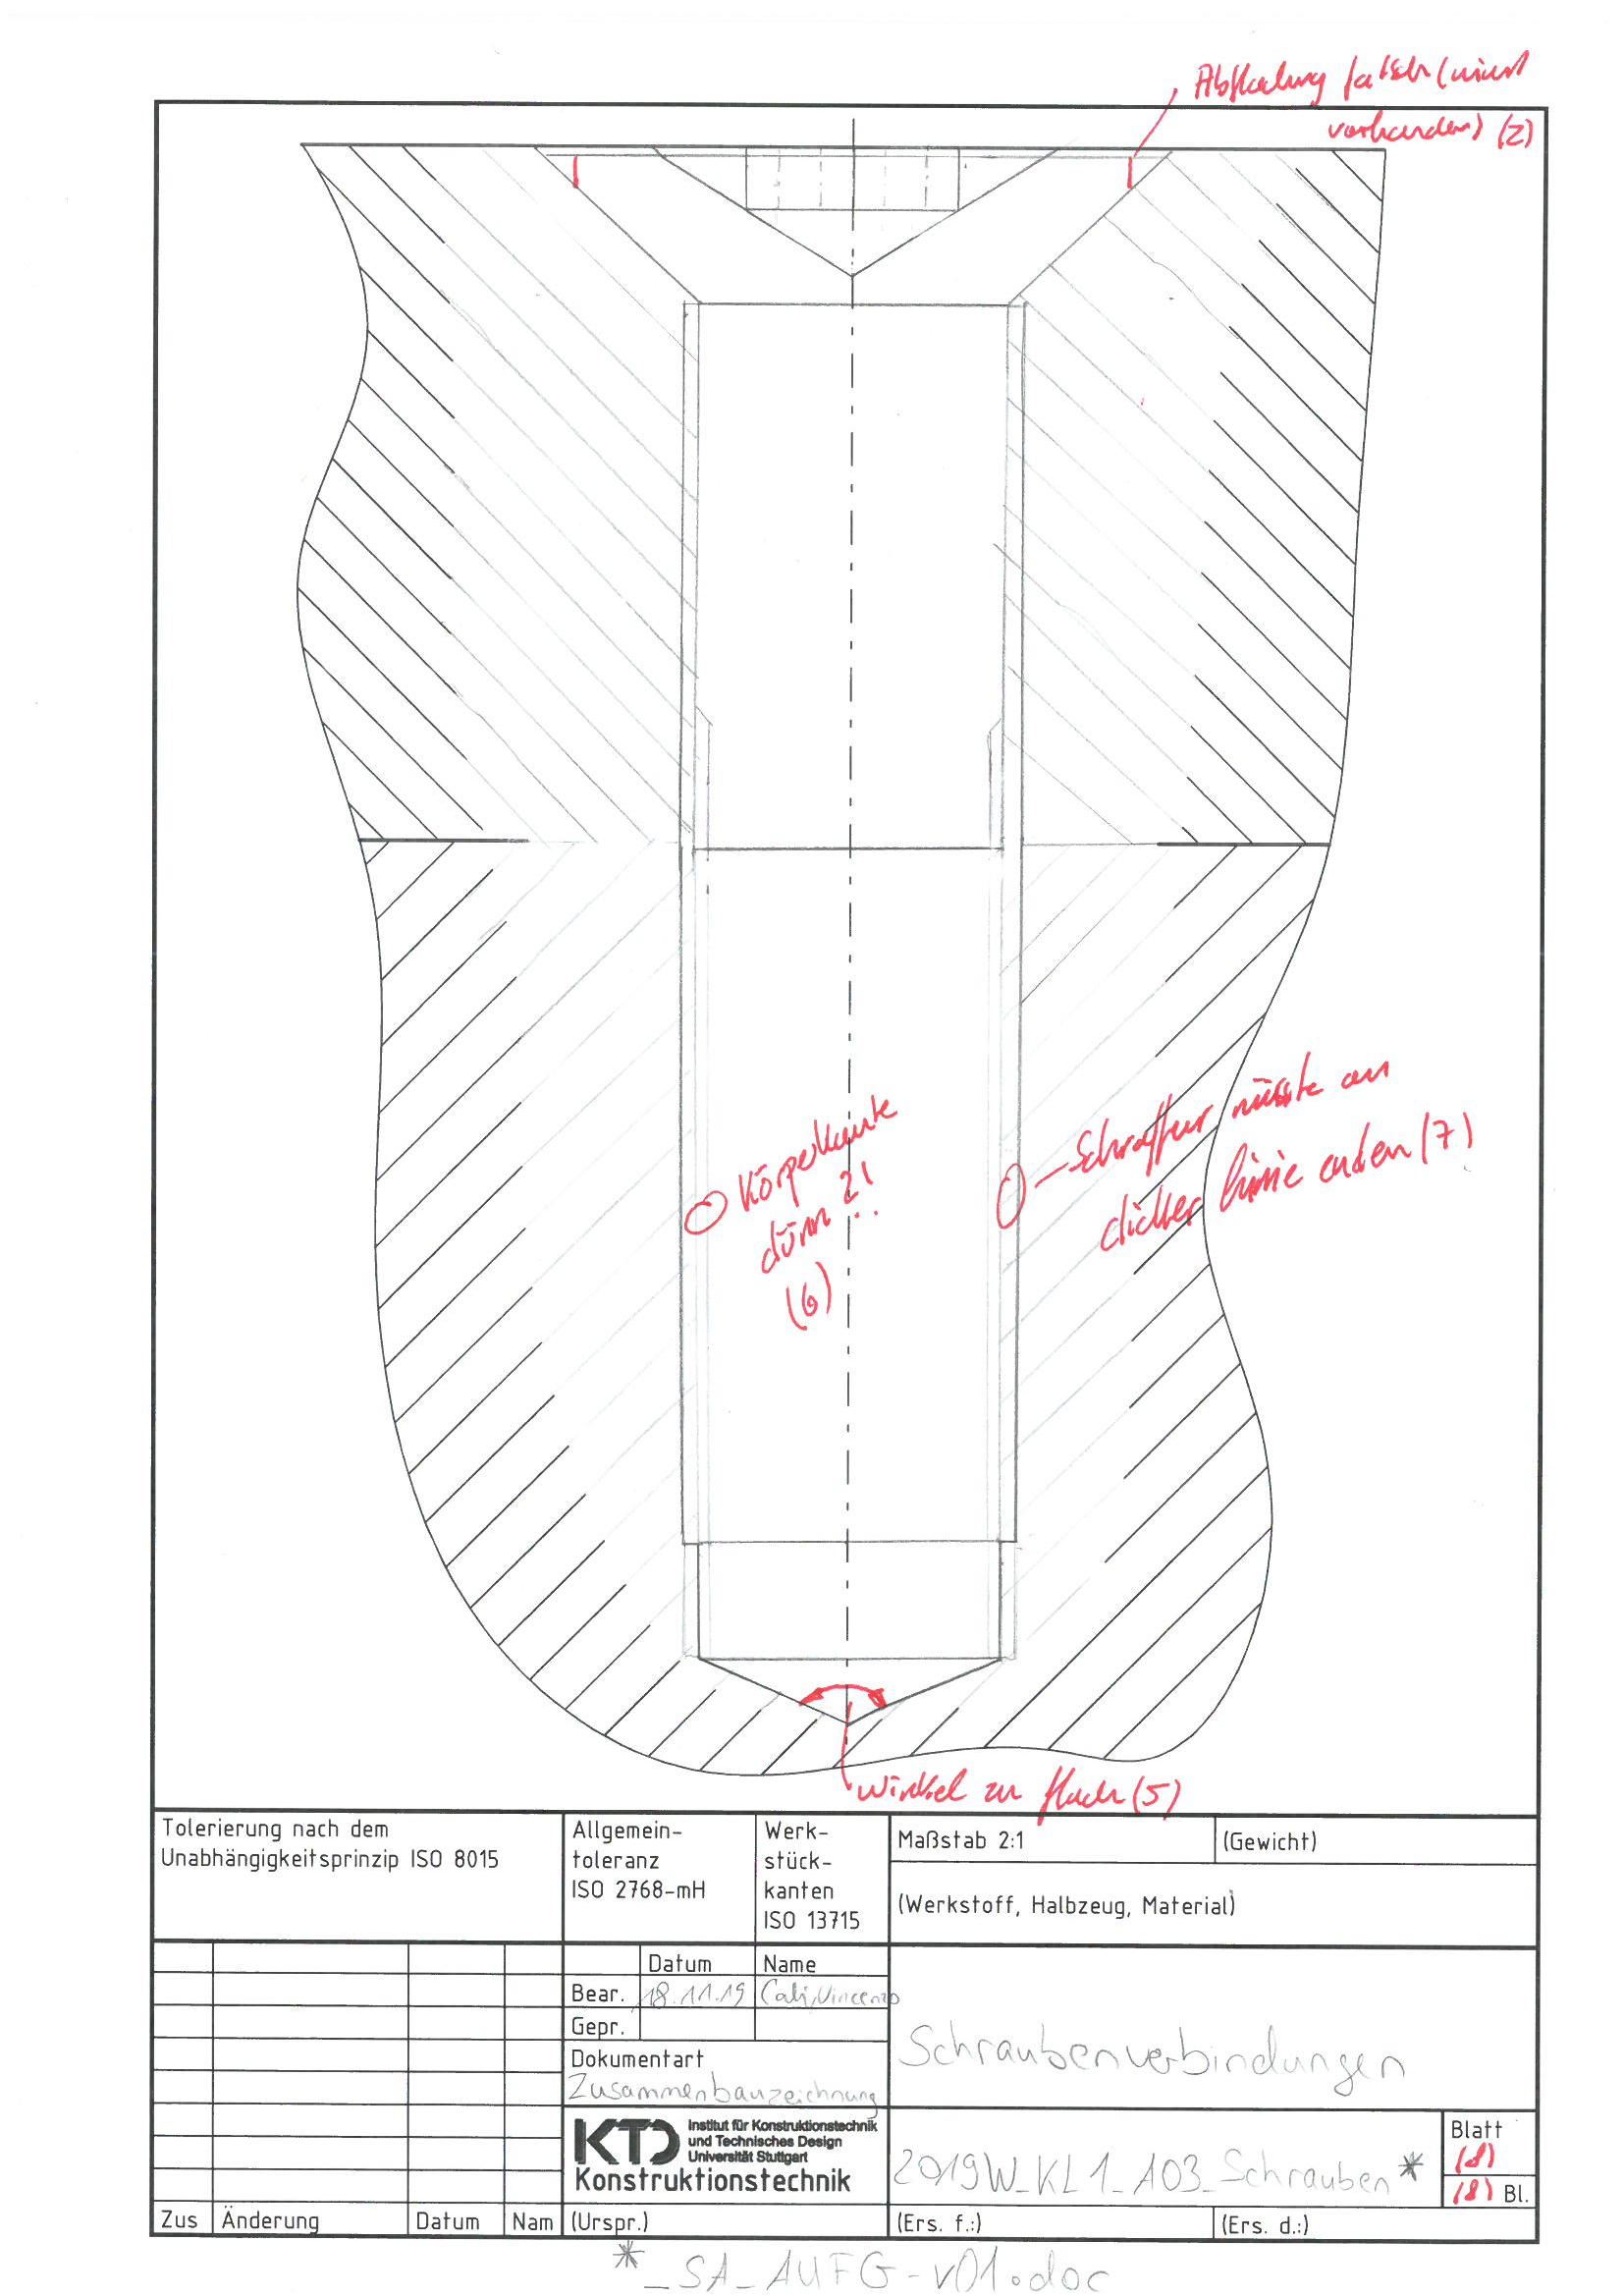 Abflachung falsch (nicht
vorhanden) (2)
Körperkante
dünn ?!
(6)
Schraffur müsste an
dicker Linie enden (7)
Winkel zu flach (5)
Tolerierung nach dem
Unabhängigkeitsprinzip ISO 8015
Allgemein-
toleranz
ISO 2768-mH
Werk-
stück-
kanten
ISO 13715
Maßstab 2:1
(Gewicht)
(Werkstoff, Halbzeug, Material)
Datum
Name
Bear.
18.11.19
Cali, Vincenzo
Gepr.
Dokumentart
Zusammenbauzeichnung
Schraubenverbindungen
KTD
Institut für Konstruktionstechnik
und Technisches Design
Universität Stuttgart
Konstruktionstechnik
2019W_KL1_A03_Schrauben*
Blatt
(8)
(8) Bl.
Zus
Änderung
Datum
Nam
(Urspr.)
(Ers. f.:)
(Ers. d.:)
*_SA_AUFG-v01.doc